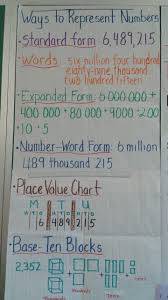 Ways to Represent Numbers
• Standard form: 6,489,215
• Words: six million four hundred
eighty-nine thousand
two hundred fifteen
• Expanded Form: 6 000 000 +
400 000 + 80 000 + 9000 + 200
+ 10 + 5
• Number-Word Form: 6 million
489 thousand 215
• Place Value Chart
M T U
6 4 8 9 2 1 5
• Base-Ten Blocks
2,352